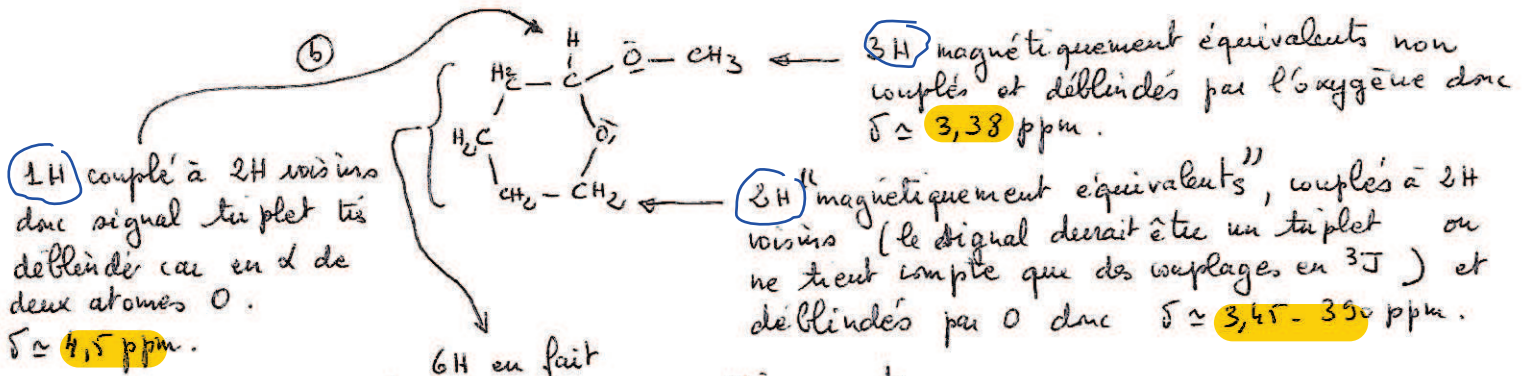 b
H
H2C – C – O – CH3
H2C O
CH2 – CH2
3H magnétiquement équivalents non
couplés et déblindés par l'oxygène donc
δ ≃ 3,38 ppm.
1H couplé à 2H voisins
donc signal triplet très
déblindé car en α de
deux atomes O.
δ ≃ 4,5 ppm.
2H "magnétiquement équivalents", couplés à 2H
voisins (le signal devrait être un triplet on
ne tient compte que des couplages en ³J) et
déblindés par O donc δ ≃ 3,45 - 3,90 ppm.
6H en fait